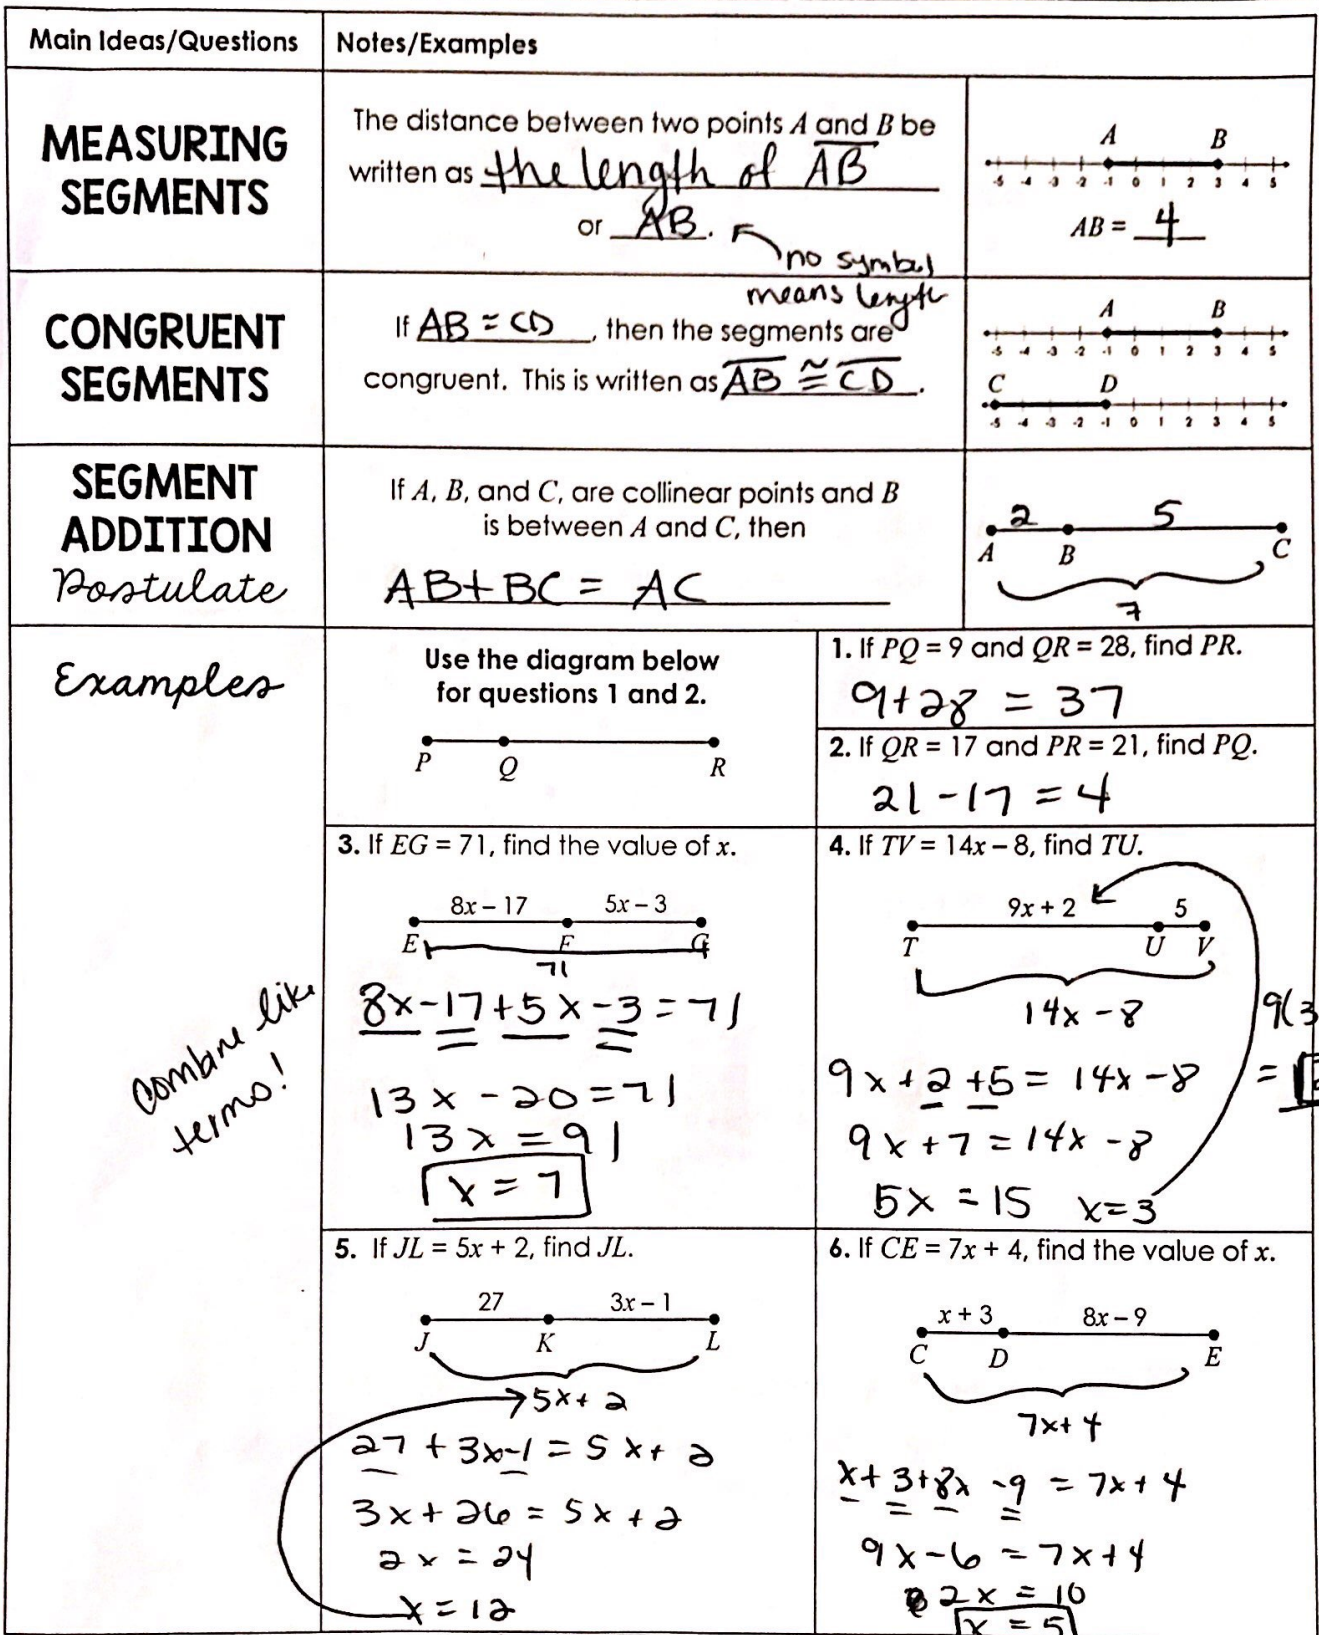 Main Ideas/Questions
Notes/Examples
MEASURING
SEGMENTS
The distance between two points A and B be
written as the length of AB
or AB.
no symbol
means length
A B
-5 -4 -3 -2 -1 0 1 2 3 4 5
AB = 4
CONGRUENT
SEGMENTS
If AB = CD, then the segments are
congruent. This is written as AB ≅ CD.
A B
-5 -4 -3 -2 -1 0 1 2 3 4 5
C D
-5 -4 -3 -2 -1 0 1 2 3 4 5
SEGMENT
ADDITION
Postulate
If A, B, and C, are collinear points and B
is between A and C, then
AB+BC = AC
2 5
A B C
7
Examples
Use the diagram below
for questions 1 and 2.
P Q R
1. If PQ = 9 and QR = 28, find PR.
9+28 = 37
2. If QR = 17 and PR = 21, find PQ.
21-17 = 4
combine like
terms!
3. If EG = 71, find the value of x.
8x – 17 5x – 3
E F G
71
8x-17+5x-3=71
13x-20=71
13x=91
x=7
4. If TV = 14x – 8, find TU.
9x + 2 5
T U V
14x-8
9(3
=
9x+2+5=14x-8
9x+7=14x-8
5x=15 x=3
5. If JL = 5x + 2, find JL.
27 3x – 1
J K L
5x+2
27+3x-1=5x+2
3x+26=5x+2
2x=24
x=12
6. If CE = 7x + 4, find the value of x.
x + 3 8x – 9
C D E
7x+4
x+3+8x-9=7x+4
9x-6=7x+4
2x=10
x=5